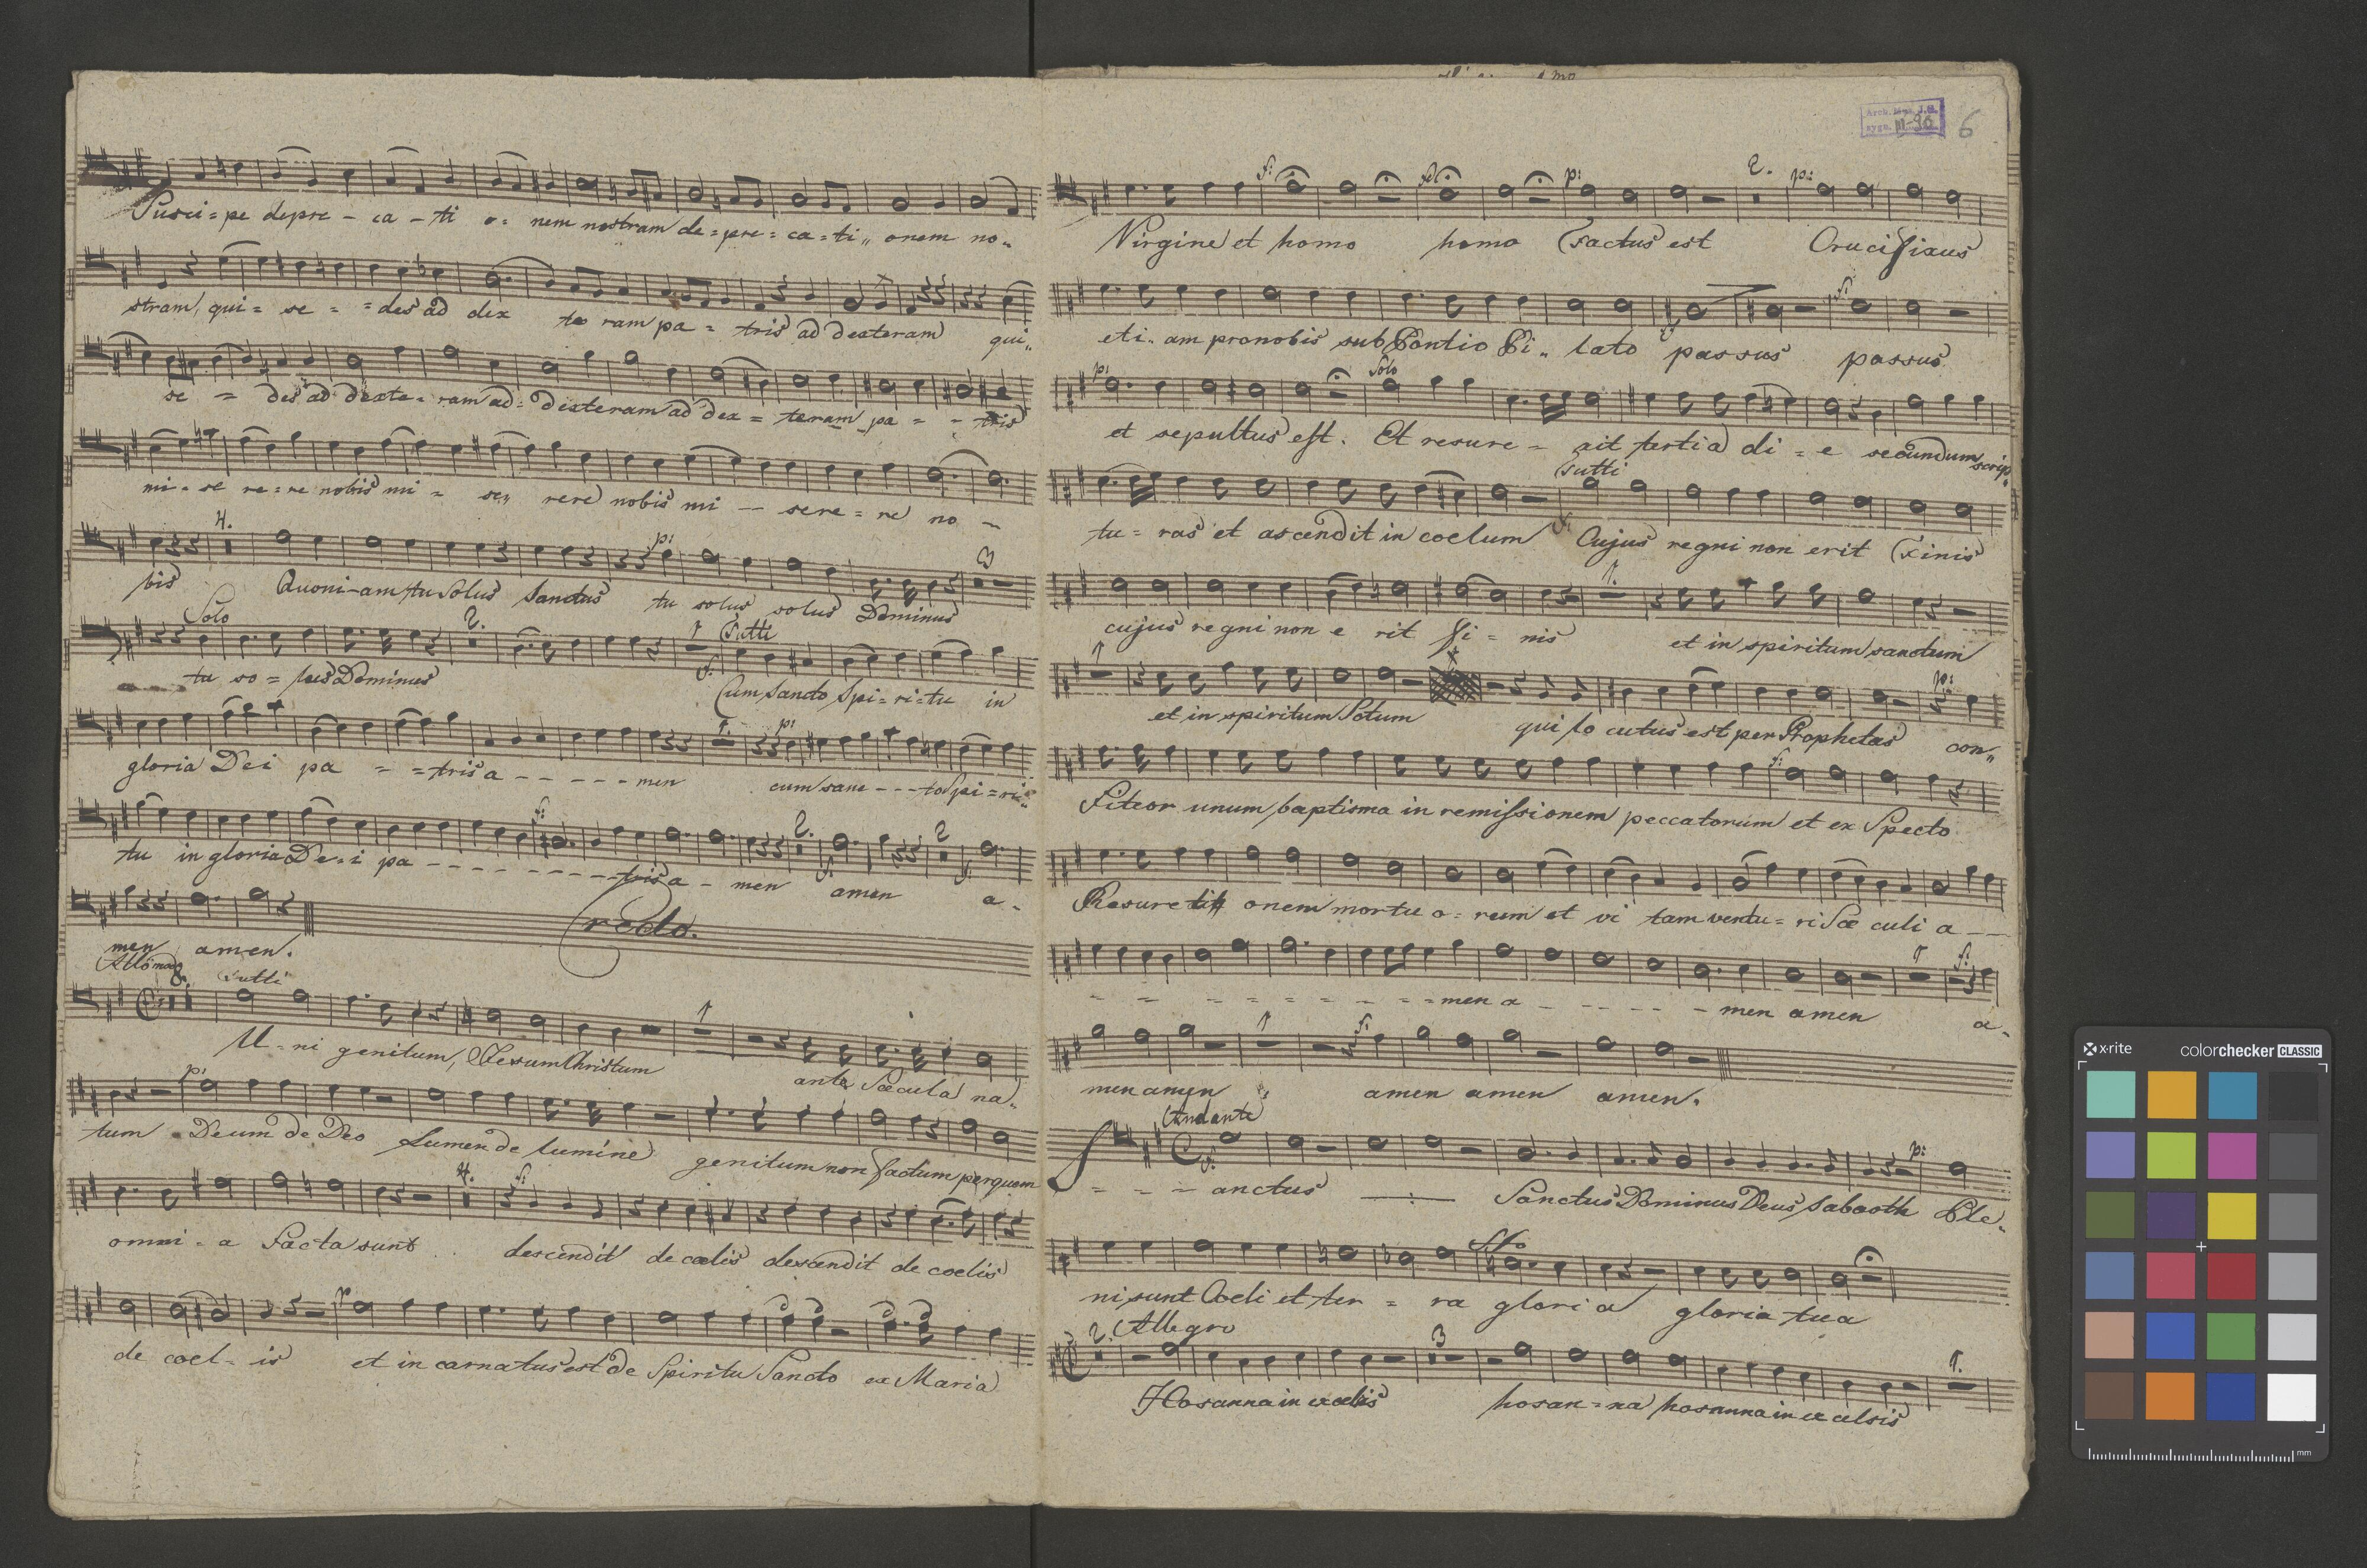 Susci=pe depre - ca - ti o= nem nostram de=pre=ca=ti,, onem no,,
stram, qui= se = =des ad dex te ram pa = tris ad dexteram qui,,
se = des ad dexte= ram ad= dexteram ad dex = teram pa = - tris
mi=se re=re nobis mi = se,, rere nobis mi -- sere=re no -
4. p:
bis Quoni-am tu Solus Sanctus tu solus solus Dominus
Solo 2. 1 Tutti
tu so=lus Dominus f: Cum Sancto Spi=ri=tu in
1. p:
gloria Dei pa = =tris a - - - - - men cum sanc - - - to Spi=ri=
f: 2. 2
tu in gloria De=i pa - - - - - - - - - tris a - men amen a-
Credo.
men amen.
Allo mod 8. Tutti
U=ni genitum, Jesum Christum ante Sæcula na-
p:
tum Deum de Deo Lumen de lumine genitum non factum per quem
4. f:
omni=a Facta sunt descendit de cœlis descendit de coelis
p
de coel= is et in carnatus est de Spiritu Sancto ex Maria
Arch.
M-96
6
f: p: 2. p:
Virgine et homo homo Factus est Crucifixus
f:
eti,, am pro nobis sub Pontio Pi,, lato passus passus
p: Solo
et sepultus est. Et resure = xit tertia di=e secundum scrip=
Tutti
tu=ras et ascendit in coelum f: Cujus regni non erit Finis
1.
cujus regni non e rit fi= nis et in spiritum sanctum
1 p:
et in spiritum Sctum qui lo cutus est per Prophetas con,,
f:
Fiteor unum baptisma in remissionem peccatorum et ex Specto
Resurecti onem mortu o=rum et vi tam ventu=ri Sæ culi a - -
1 f:
- = = = = = - = =men a - - - - - men amen a-
1 f:
men amen amen amen amen.
Andante
p:
S = - - anctus Sanctus Dominus Deus Sabaoth Ple-
ni sunt Coeli et ter = ra gloria gloria tua
2. Allegro 3 1.
Hosanna in excelsis hosan=na hosanna in ex celsis
x-rite colorchecker CLASSIC
mm